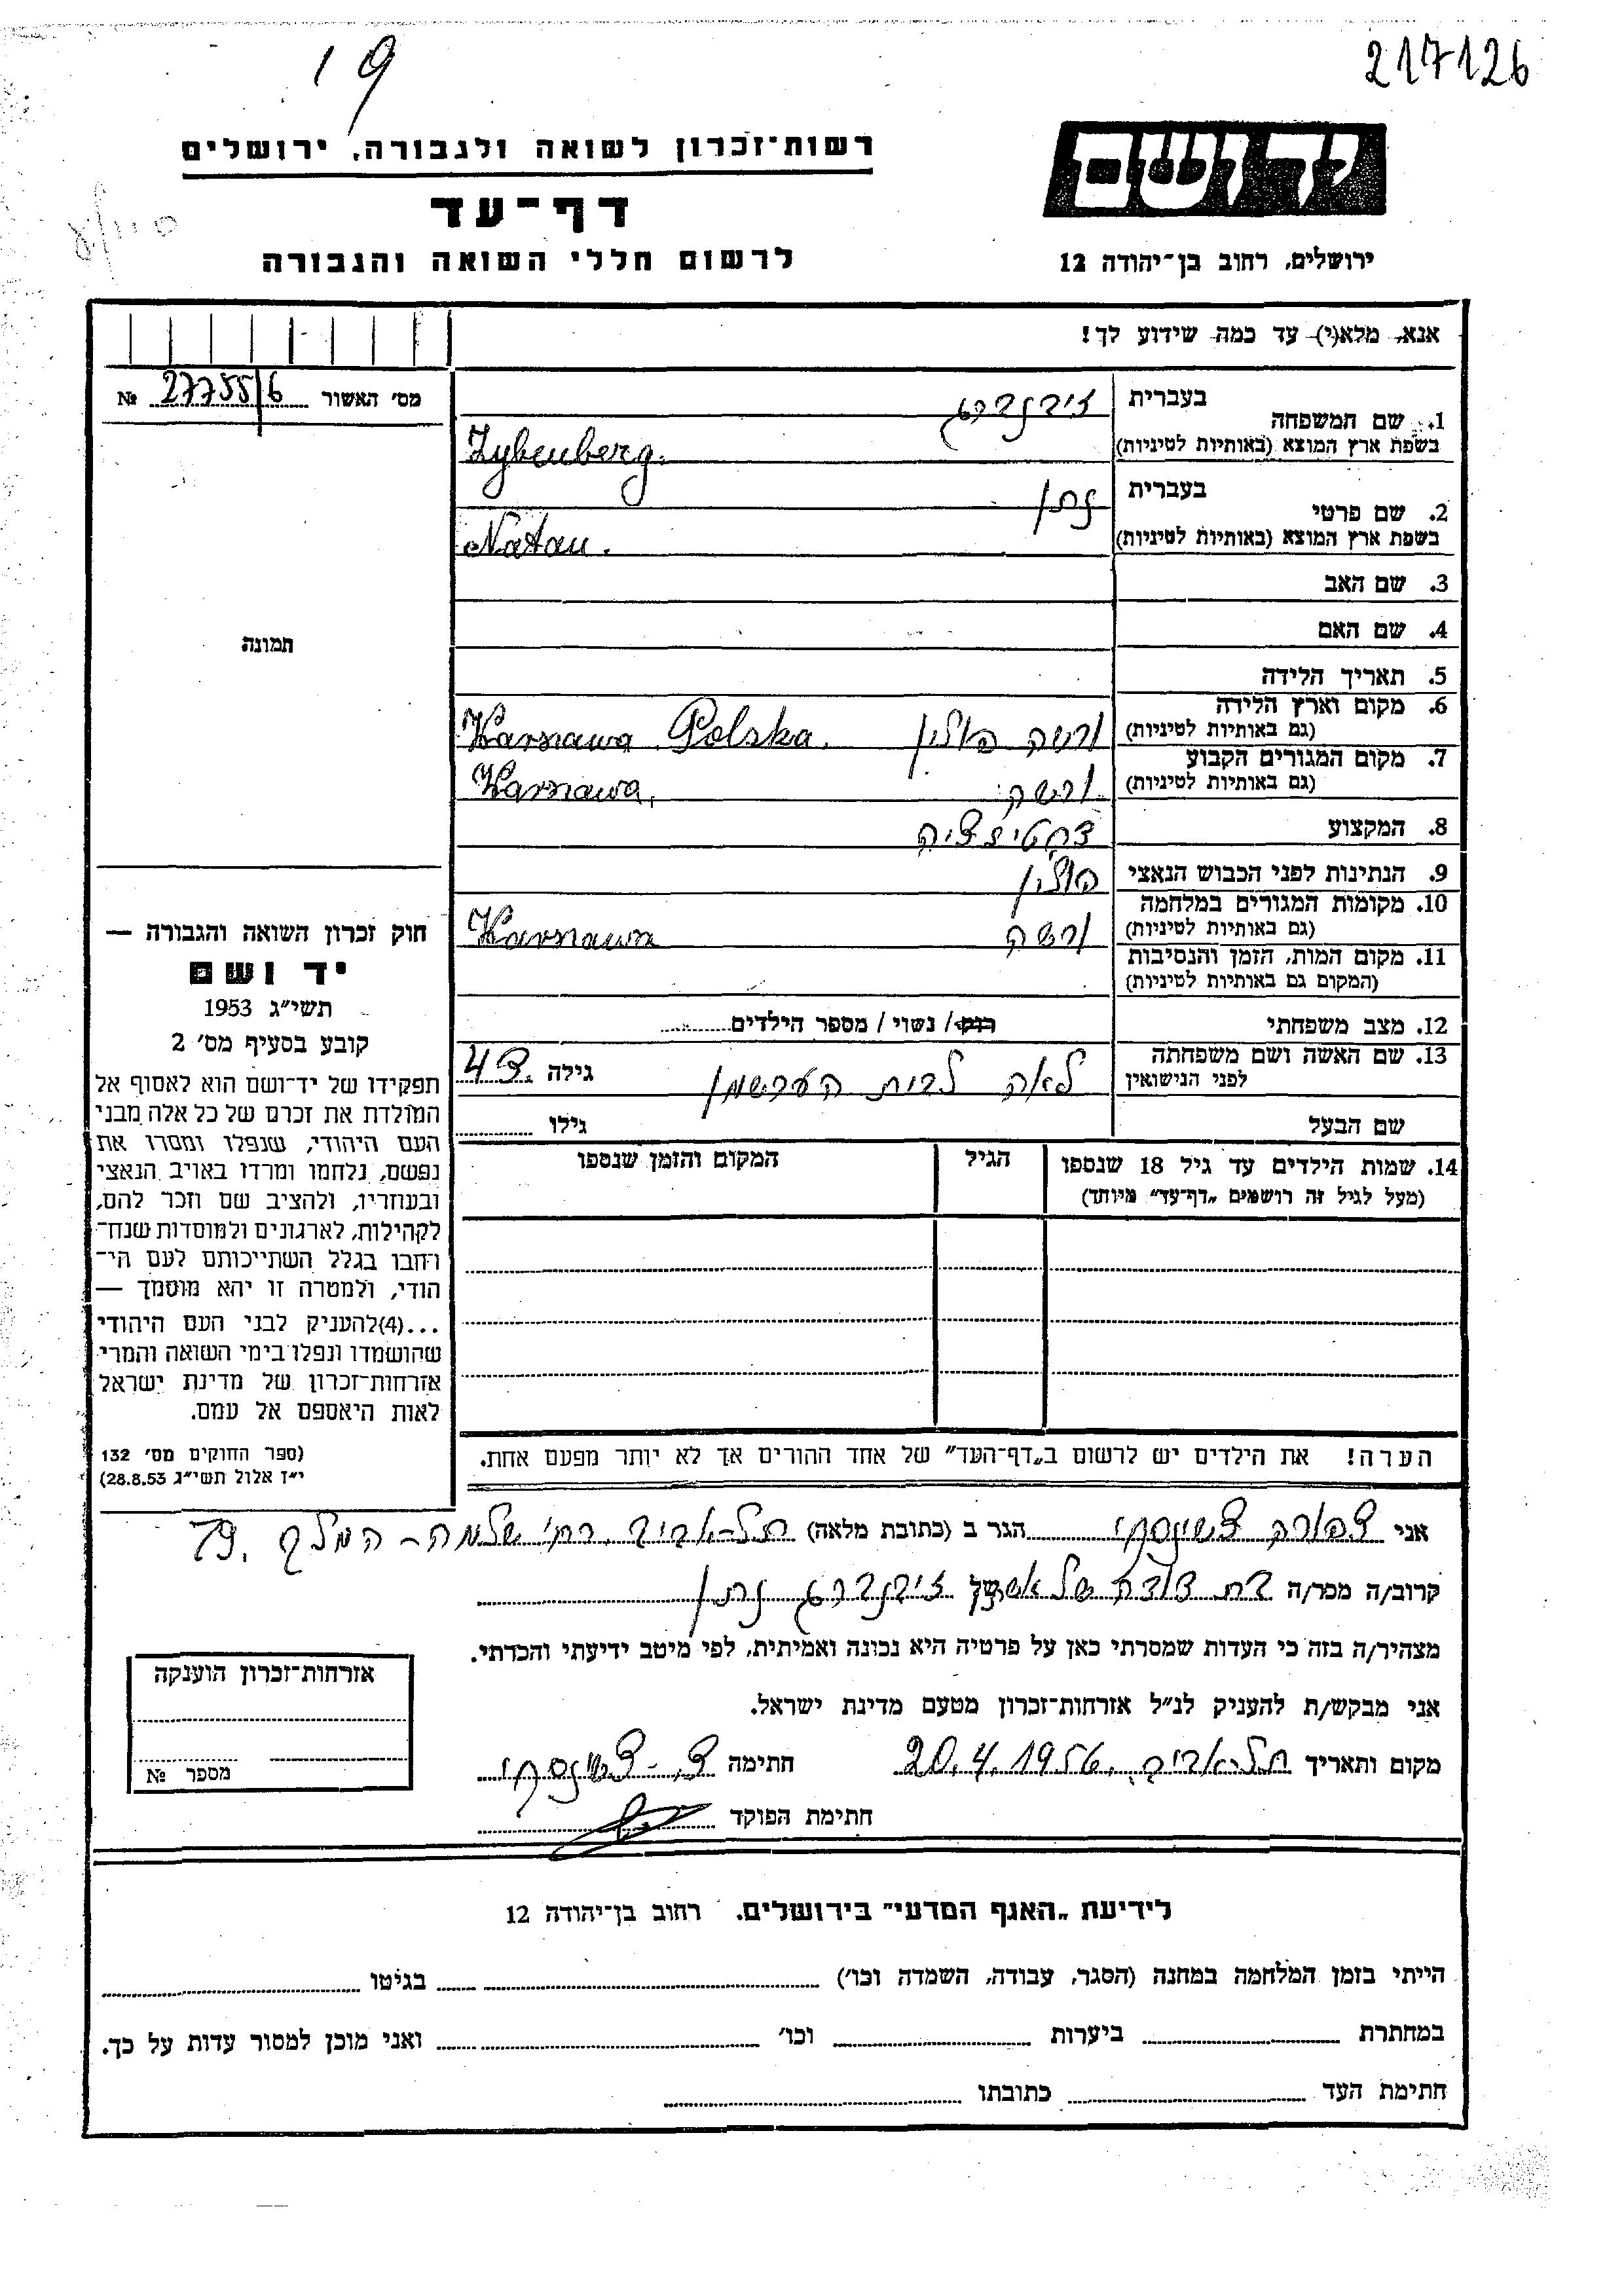 19
217126
רשות־זכרון לשואה ולגבורה, ירושלים
יד ושם
דף־עד
לרשום חללי השואה והגבורה
ירושלים, רחוב בן־יהודה 12
אנא, מלא(י) עד כמה שידוע לך!
מס׳ האשור 27755/6 №
1. שם המשפחה
בעברית זילבערג
בשפת ארץ המוצא (באותיות לטיניות) Zylbenberg.
2. שם פרטי
בעברית נתן
בשפת ארץ המוצא (באותיות לטיניות) Natan.
3. שם האב
4. שם האם
תמונה
5. תאריך הלידה
6. מקום וארץ הלידה
(גם באותיות לטיניות) ורשה פולין Warszawa Polska.
7. מקום המגורים הקבוע
(גם באותיות לטיניות) ורשה Warszawa.
8. המקצוע
9. הנתינות לפני הכבוש הנאצי פולין
10. מקומות המגורים במלחמה
(גם באותיות לטיניות) ורשה Warszawa
11. מקום המות, הזמן והנסיבות
(המקום גם באותיות לטיניות)
12. מצב משפחתי רווק / נשוי / מספר הילדים
13. שם האשה ושם משפחתה
לפני הנישואין לאה לבית הערשמן גילה 43
שם הבעל גילו
14. שמות הילדים עד גיל 18 שנספו
(מעל לגיל זה רושמים „דף־עד״ מיוחד)
הגיל
המקום והזמן שנספו
חוק זכרון השואה והגבורה —
יד ושם
תשי״ג 1953
קובע בסעיף מס׳ 2
תפקידו של יד־ושם הוא לאסוף אל
המולדת את זכרם של כל אלה מבני
העם היהודי, שנפלו ומסרו את
נפשם, נלחמו ומרדו באויב הנאצי
ובעוזריו, ולהציב שם וזכר להם,
לקהילות, לארגונים ולמוסדות שנח־
רחבו בגלל השתייכותם לעם הי־
הודי, ולמטרה זו יהא מוסמך —
...(4)להעניק לבני העם היהודי
שהושמדו ונפלו בימי השואה והמרי
אזרחות־זכרון של מדינת ישראל
לאות היאספם אל עמם.
(ספר החוקים מס׳ 132
י״ז אלול תשי״ג 28.8.53)
הערה! את הילדים יש לרשום ב„דף־העד״ של אחד ההורים אך לא יותר מפעם אחת.
אני צפורה הגר ב (כתובת מלאה) תל-אביב רח׳ שלמה-המלך 79.
קרוב/ה מפר/ה בת דודה של נתן
מצהיר/ה בזה כי העדות שמסרתי כאן על פרטיה היא נכונה ואמיתית, לפי מיטב ידיעתי והכרתי.
אני מבקש/ת להעניק לנ״ל אזרחות־זכרון מטעם מדינת ישראל.
מקום ותאריך תל-אביב, 20.4.1956 חתימה
חתימת הפוקד
אזרחות־זכרון הוענקה
מספר №
לידיעת „האגף המדעי״ בירושלים, רחוב בן־יהודה 12
הייתי בזמן המלחמה במחנה (הסגר, עבודה, השמדה וכו׳) בגיטו
במחתרת ביערות וכו׳ ואני מוכן למסור עדות על כך.
חתימת העד כתובתו